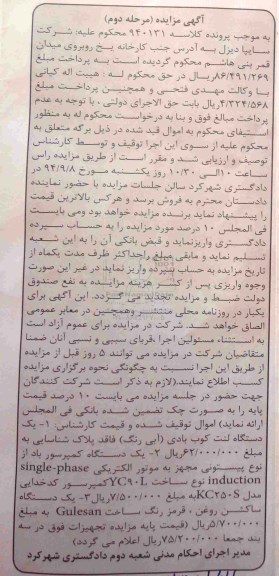 آگهی مزایده (مرحله دوم)
به موجب پرونده کلاسه ۹۴۰۱۳۱ محکوم علیه: شرکت
سایپا دیزل به آدرس جنب کارخانه یخ روبروی میدان
قمر بنی هاشم محکوم گردیده است به پرداخت مبلغ
۸۶/۴۹۱/۲۶۹ریال در حق محکوم له : هیبت اله کیانی
با وکالت مهدی فتحی و همچنین پرداخت مبلغ
۴/۳۲۴/۵۶۸ریال بابت حق الاجرای دولتی ، با توجه به عدم
پرداخت مبالغ فوق و بنا به درخواست محکوم له به منظور
استیفای محکوم به اموال قید شده در ذیل برگه متعلق به
محکوم علیه از سوی این اجرا توقیف و توسط کارشناس
توصیف و ارزیابی شد و مقرر است از طریق مزایده راس
ساعت ۱۰الی ۱۰/۳۰ روز یکشنبه مورخ ۹۴/۹/۸ در
دادگستری شهرکرد سالن جلسات مزایده با حضور نماینده
دادستان محترم به فروش برسد و هرکس بالاترین قیمت
را پیشنهاد نماید برنده مزایده خواهد بود ومی بایست
فی المجلس ۱۰ درصد مورد مزایده را به حساب سپرده
دادگستری واریزنماید و قبض بانکی آن را به این شعبه
تسلیم نماید و مابقی مبلغ راحداکثر ظرف مدت یکماه از
تاریخ مزایده به حساب سپرده واریز نماید در غیر این صورت
وجوه واریزی پس از کسر هزینه مزایده به نفع صندوق
دولت ضبط و مزایده تجدید می گردد. این آگهی برای
یکبار در روزنامه محلی منتشر وهمچنین در معابر عمومی
الصاق خواهد شد. شرکت در مزایده برای عموم آزاد است
به استثناء مسئولین اجرا ،اقربای سببی و نسبی آنان ضمنا
متقاضیان شرکت در مزایده می توانند ۵ روز قبل از مزایده
از طریق این اجرا نسبت به چگونگی نحوه برگزاری مزایده
کسب اطلاع نمایند.(لازم به ذکر است شرکت کنندگان
جهت حضور در جلسه مزایده می بایست ۱۰ درصد قیمت
پایه را به صورت چک تضمین شده بانکی فی المجلس
ارائه نمایند) اموال توقیف شده و قیمت کارشناس: ۱- یک
دستگاه لنت کوب بادی (آبی رنگ) فاقد پلاک شناسایی به
مبلغ ۶۲/۰۰۰/۰۰۰ریال ۲- یک دستگاه کمپرسور باد از
نوع پیستونی مجهز به موتور الکتریکی single-phase
induction نوع ساخت YC۹۰Lکمپرسور کدخدایی
مدل KC۲۵۰Sبه مبلغ ۷/۵۰۰/۰۰۰ریال۳- یک دستگاه
ساکشن روغن ، قرمز رنگ ساخت Gulesan به مبلغ
۵/۷۰۰/۰۰۰ریال (قیمت پایه مزایده تجهیزات فوق در سه
بند جمعا ۷۵/۲۰۰/۰۰۰ریال اعلام می گردد)
مدیر اجرای احکام مدنی شعبه دوم دادگستری شهرکرد